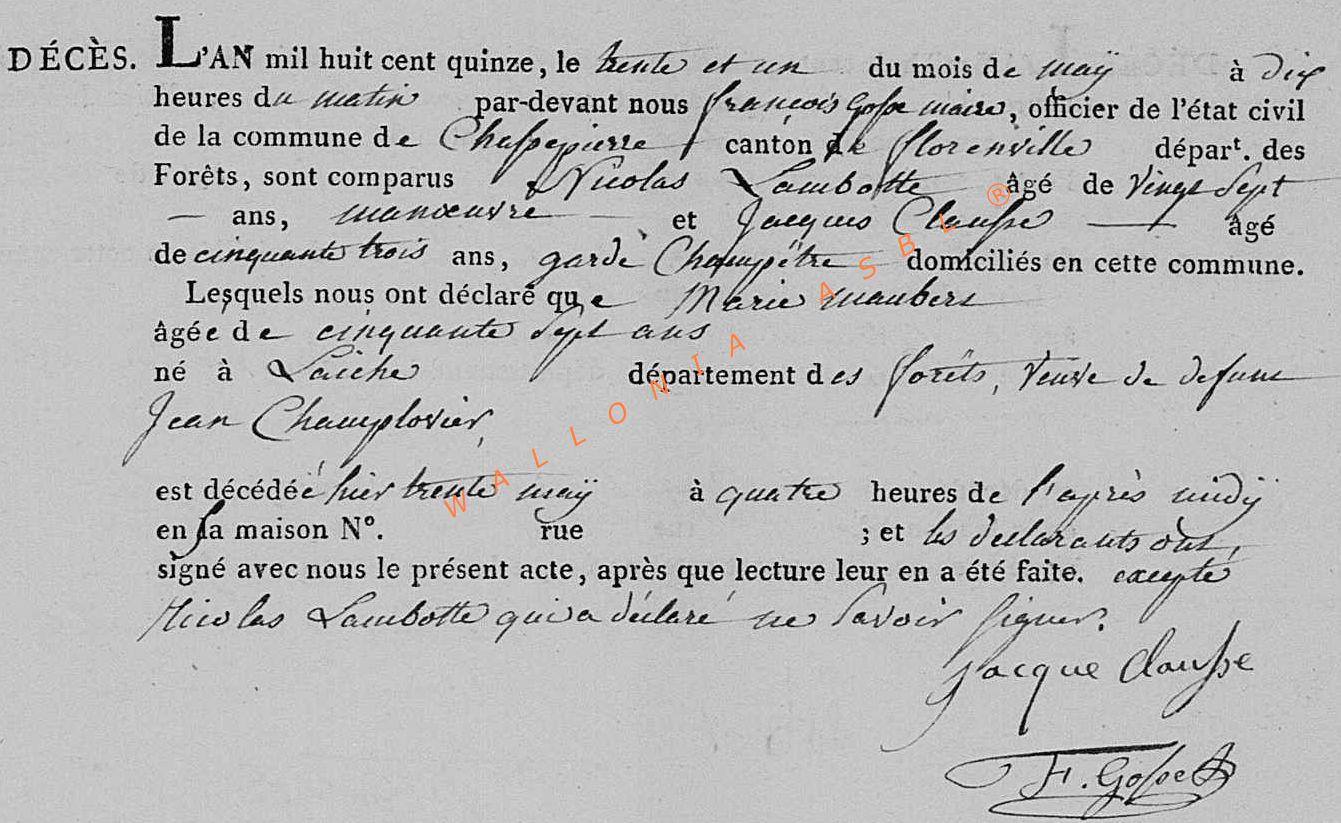 DÉCÈS. L'AN mil huit cent quinze, le trente et un du mois de maÿ à dix
heures du matin par-devant nous françois Gosse maire, officier de l'état civil
de la commune de Chassepierre canton de florenville départ. des
Forêts, sont comparus Nicolas Lambotte âgé de vingt sept
— ans, manœuvre — et Jacques Clausse — âgé
de cinquante trois ans, garde Champêtre domiciliés en cette commune.
Lesquels nous ont déclaré que Marie maubert
âgée de cinquante sept ans
né à Laiche département des forêts, veuve de defunt
Jean Champlovier,
est décédée hier trente maÿ à quatre heures de l'après midÿ
en sa maison N°. rue ; et les déclarants ont,
signé avec nous le présent acte, après que lecture leur en a été faite. excepté
Nicolas Lambotte qui a déclaré ne savoir signer.
Jacque Clausse
F. Gosse
WALLONIA ASBL ®